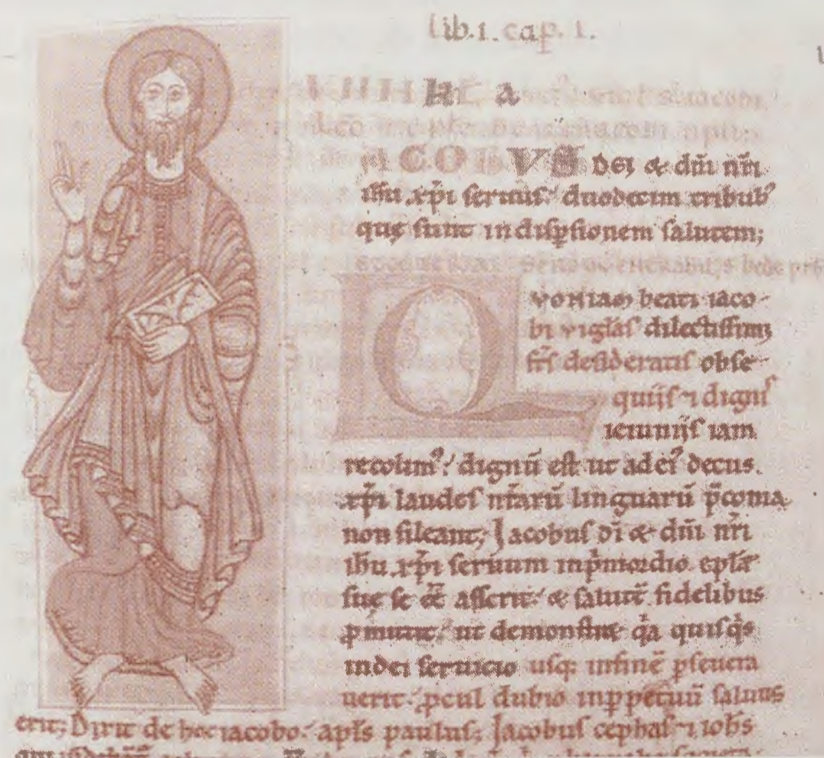 lib. 1. cap. 1.
IACOBVS Dei & dñi nr̃i
ihu xp̃i seruus. duodecim tribub'
quę sunt indisp̱sionem salutem;
QVONIAM beati iaco-
bi vigilias dilectissimi
fr̃s desideratis obse
quijs ⁊ dignis
ieiunijs iam
recolim'. dignũ est ut ad ei' decus
xp̃i laudes nr̃arũ linguarũ p̃conia
non sileant; Jacobus dĩ & dñi nr̃i
ihu xp̃i seruum inp̃mordio epl̃ę
suę se eẽ asserit. & salutẽ fidelibus
p̱mittit. ut demonstret q̃a quisq̃s
indei seruicio usq; infinẽ p̱seuera
uerit. p̱cul dubio inp̱petuũ saluus
erit; Dixit de hoc iacobo. apl̃s paulus; Jacobus cephas ⁊ ioh̃s